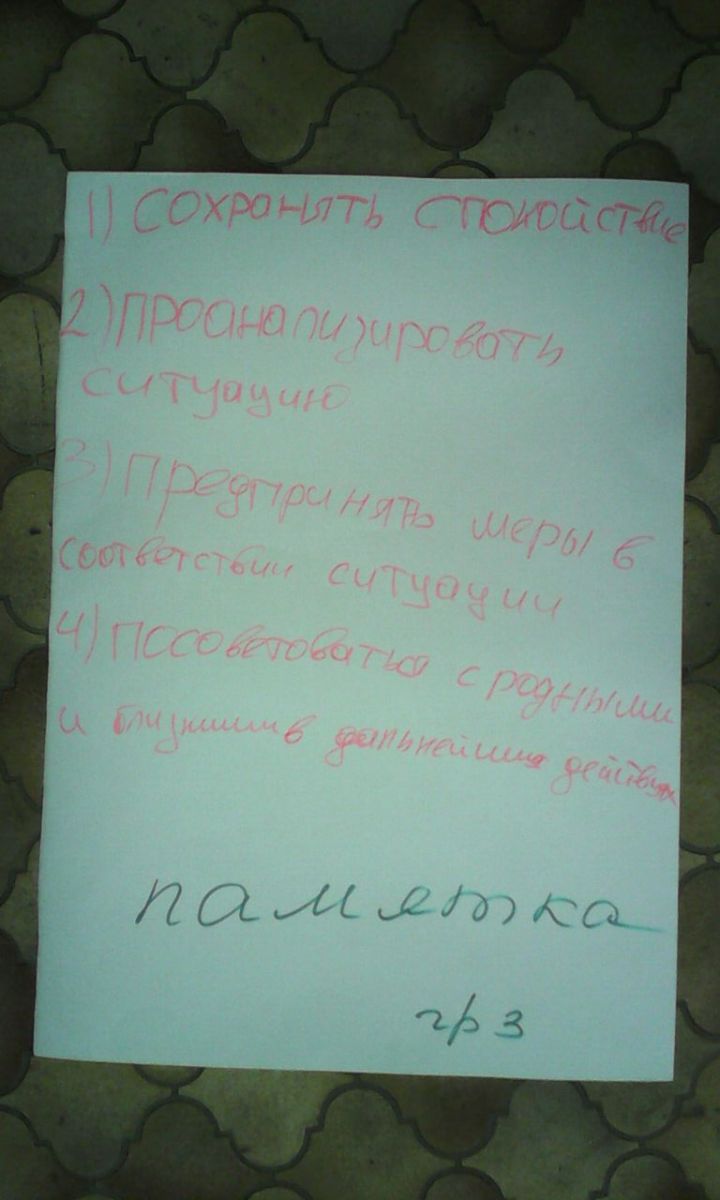 1) Сохранять спокойствие
2) проанализировать
ситуацию
3) Предпринять меры в
соответствии ситуации
4) посоветоваться с родными
и близкими в дальнейших действиях
памятка
гр 3